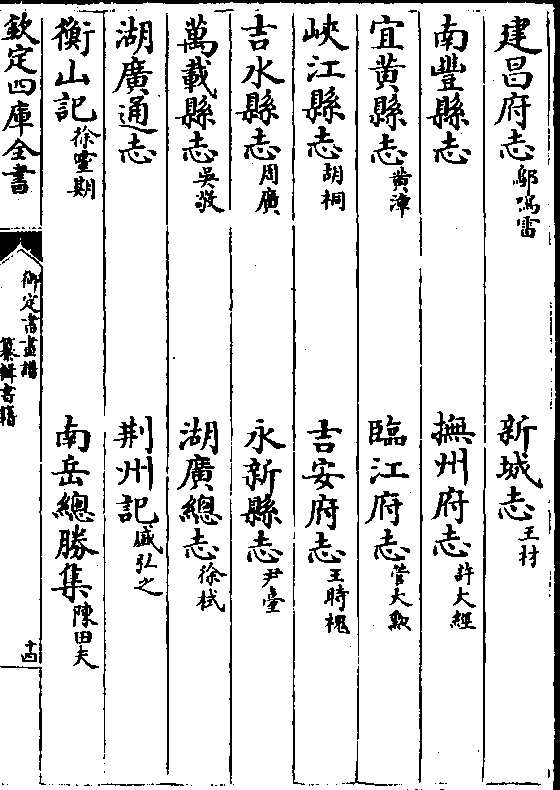 建昌府志鄔鳴雷　新城志王材
南豐縣志　撫州府志許大經
宜黄縣志黄漳　臨江府志管大勲
峽江縣志胡桐　吉安府志王時槐
吉水縣志周廣　永新縣志尹臺
萬載縣志吳敬　湖廣總志徐栻
湖廣通志　荆州記盛弘之
衡山記徐靈期　南岳總勝集陳田夫
欽定四庫全書
御定書畫譜
纂輯書籍
十四